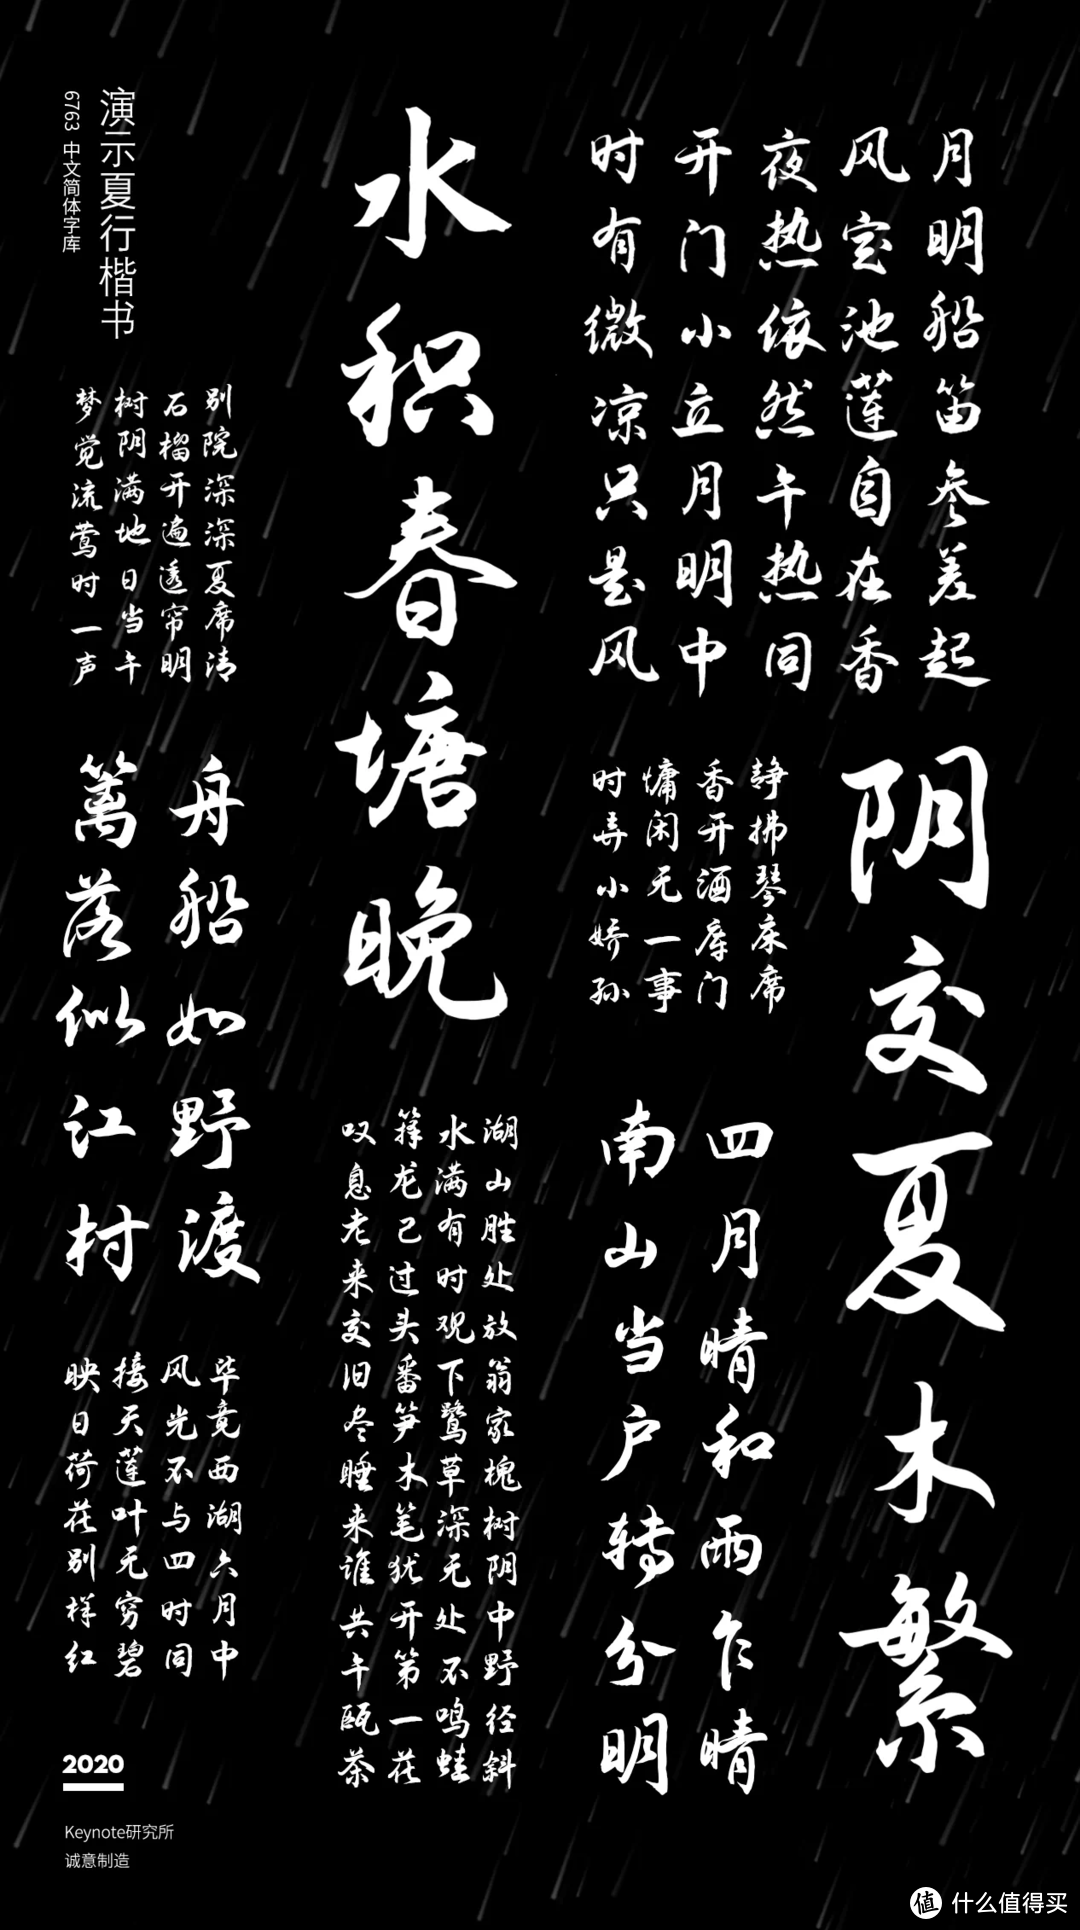 月明船笛参差起
风定池莲自在香
夜热依然午热同
开门小立月明中
时有微凉只是风
阴交夏木繁
静拂琴床席
香开酒库门
慵闲无一事
时弄小娇孙
四月晴和雨乍晴
南山当户转分明
水积春塘晚
湖山胜处放翁家槐树阴中野径斜
水满有时观下鹭草深无处不鸣蛙
箨龙已过头番笋木笔犹开第一花
叹息老来交旧尽睡来谁共午瓯茶
演示夏行楷书
6763 中文简体字库
别院深深夏席清
石榴开遍透帘明
树阴满地日当午
梦觉流莺时一声
舟船如野渡
篱落似江村
毕竟西湖六月中
风光不与四时同
接天莲叶无穷碧
映日荷花别样红
2020
Keynote研究所
诚意制造
值 什么值得买